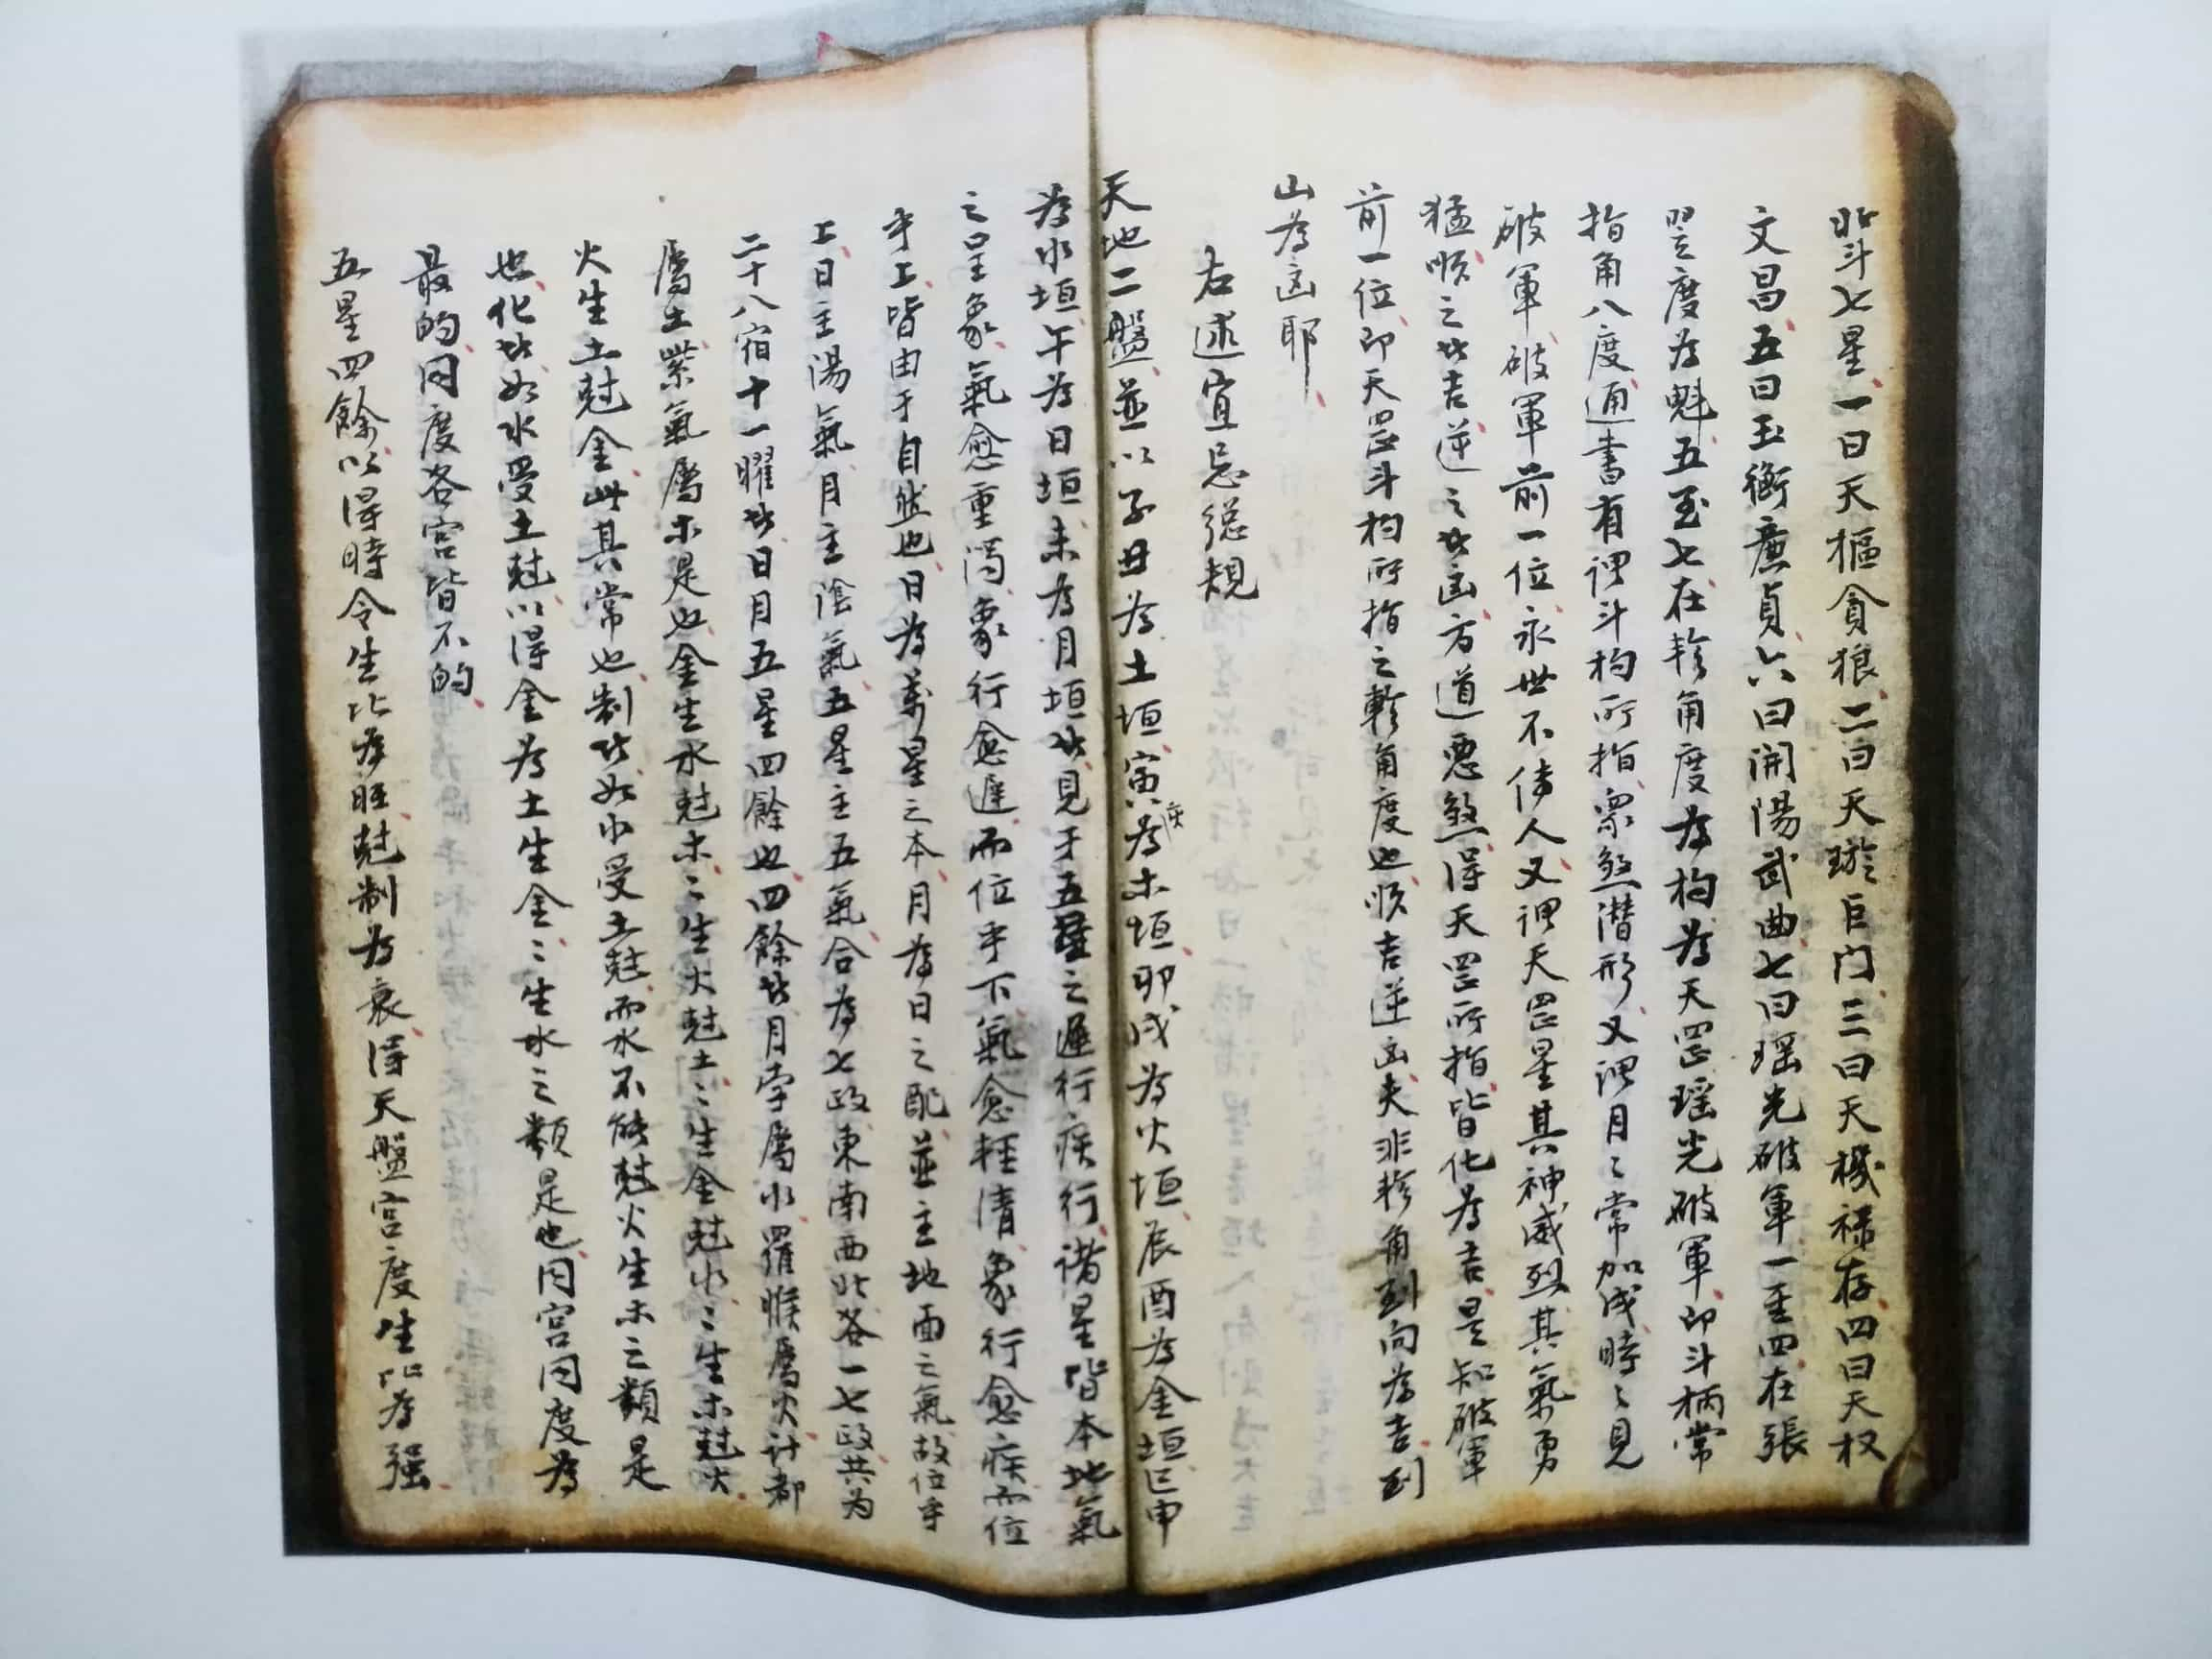 北斗七星一曰天樞貪狼二曰天璇巨门三曰天機禄存四曰天权
文昌五曰玉衡廉貞六曰開陽武曲七曰瑶光破軍一至四在張
翌度為魁五至七在軫角度為杓為天罡瑶光破軍即斗柄常
指角八度通書有謂斗杓所指眾煞潜形又謂月〻常加戌時〻見
破軍破軍前一位永世不傳人又謂天罡星其神威烈其氣勇
猛順之者吉逆之者凶方道惡煞得天罡所指皆化為吉是知破軍
前一位即天罡斗杓所指之軫角度也順吉逆凶夫非軫角到向為吉到
山為凶耶
右述宜忌總規
天地二盤並以子丑為土垣寅亥為木垣卯戌為火垣辰酉為金垣巳申
為水垣午為日垣未為月垣者見于五星之遲行疾行諸星皆本地氣
之呈象氣愈重濁象行愈遲而位乎下氣愈輕清象行愈疾而位
乎上皆由于自然也日為萬星之本月為日之配並主地面之氣故位乎
上日主湯氣月主陰氣五星主五氣合為七政東南西北各一七政共为
二十八宿十一曜者日月五星四餘也四餘者月孛屬水羅睺屬火计都
屬土紫氣屬木是也金生水尅木〻生火尅土〻生金尅水〻生木尅火
火生土尅金此其常也制者如水受土尅而水不能尅火生木之類是
也化者如水受土尅以得金為土生金〻生水之類是也同宮同度為
最的同度各宮皆不的
五星四餘以得時令生比為旺尅制為衰得天盤宮度生比為强